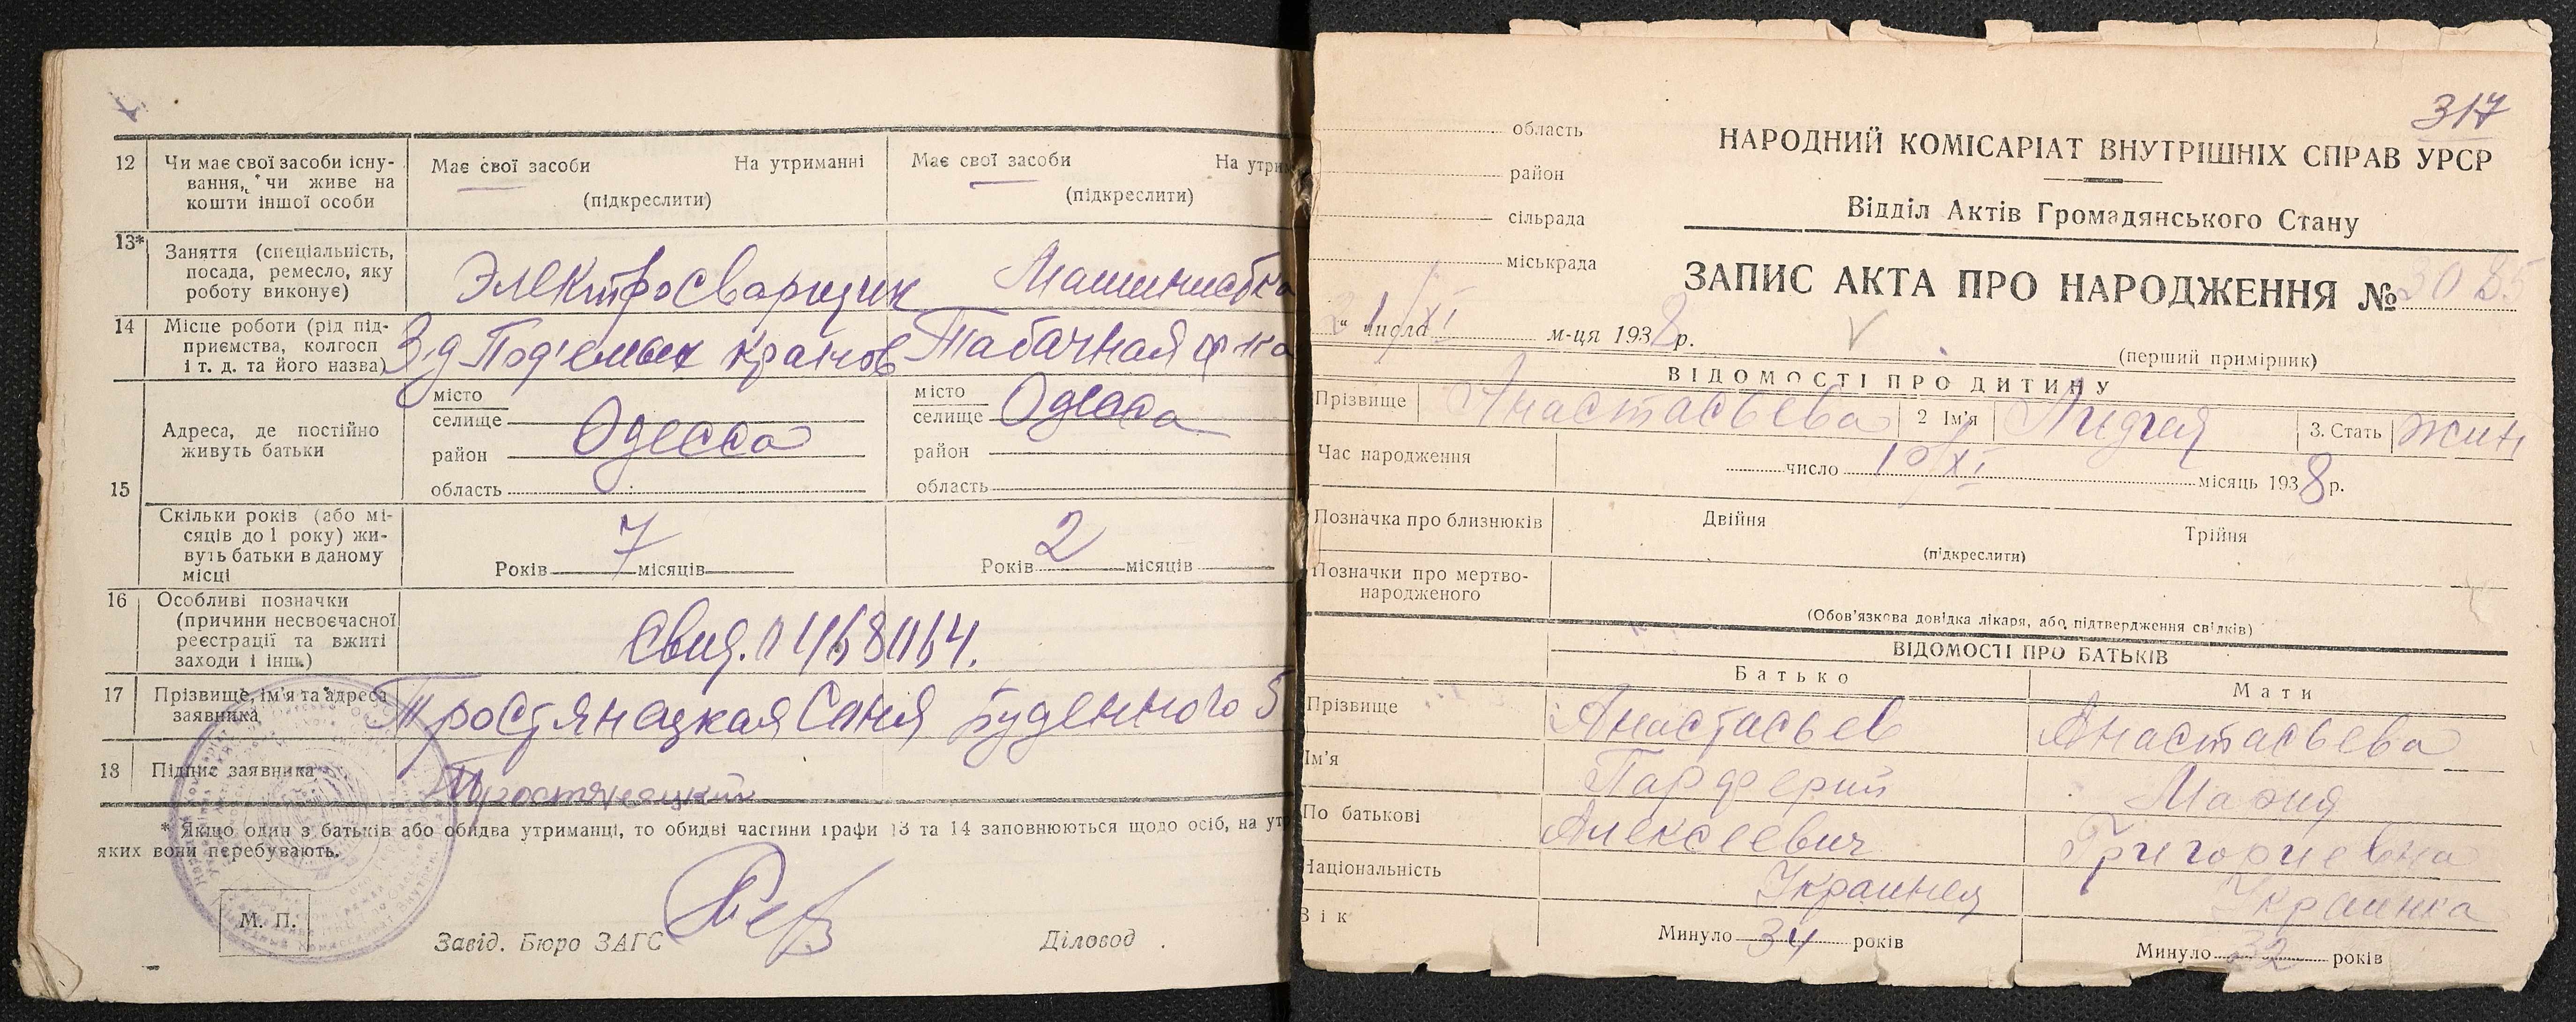 12 Чи має свої засоби існу-
вання, чи живе на
кошти іншої особи
Має свої засоби На утриманні
(підкреслити)
Має свої засоби На утрим
(підкреслити)
13* Заняття (спеціальність,
посада, ремесло, яку
роботу виконує)
Электросварщик Машинистка
14 Місце роботи (рід під-
приємства, колгосп
і т. д. та його назва)
З-д Под'емных кранов Табачная ф-ка
15 Адреса, де постійно
живуть батьки
місто
селище
район
область
Одесса
місто
селище
район
область
Одесса
Скільки років (або мі-
сяців до 1 року) жи-
вуть батьки в даному
місці
Років 7 місяців
Років 2 місяців
16 Особливі позначки
(причини несвоєчасної
реєстрації та вжиті
заходи і інш.)
Свид.
17 Прізвище, ім'я та адреса
заявника
Тростянецкая Соня Буденного 5
18 Підпис заявника
* Якщо один з батьків або обидва утриманці, то обидві частини графи 13 та 14 заповнюються щодо осіб, на ут
яких вони перебувають.
М. П.
Завід. Бюро ЗАГС Діловод
317
область
район
сільрада
міськрада
НАРОДНИЙ КОМІСАРІАТ ВНУТРІШНІХ СПРАВ УРСР
Відділ Актів Громадянського Стану
ЗАПИС АКТА ПРО НАРОДЖЕННЯ № 3085
21/XI числа м-ця 1938 р.
(перший примірник)
ВІДОМОСТІ ПРО ДИТИНУ
Прізвище Анастасьева 2 Ім'я Лидия 3. Стать жін
Час народження число 10/XI місяць 1938 р.
Позначка про близнюків Двійня Трійня
(підкреслити)
Позначки про мертво-
народженого
(Обов'язкова довідка лікаря, або підтвердження свідків)
ВІДОМОСТІ ПРО БАТЬКІВ
Батько Мати
Прізвище Анастасьев Анастасьева
Ім'я Парферий Мария
По батькові Алексеевич Григориевна
Національність Украинец Украинка
Вік Минуло 34 років Минуло 32 років